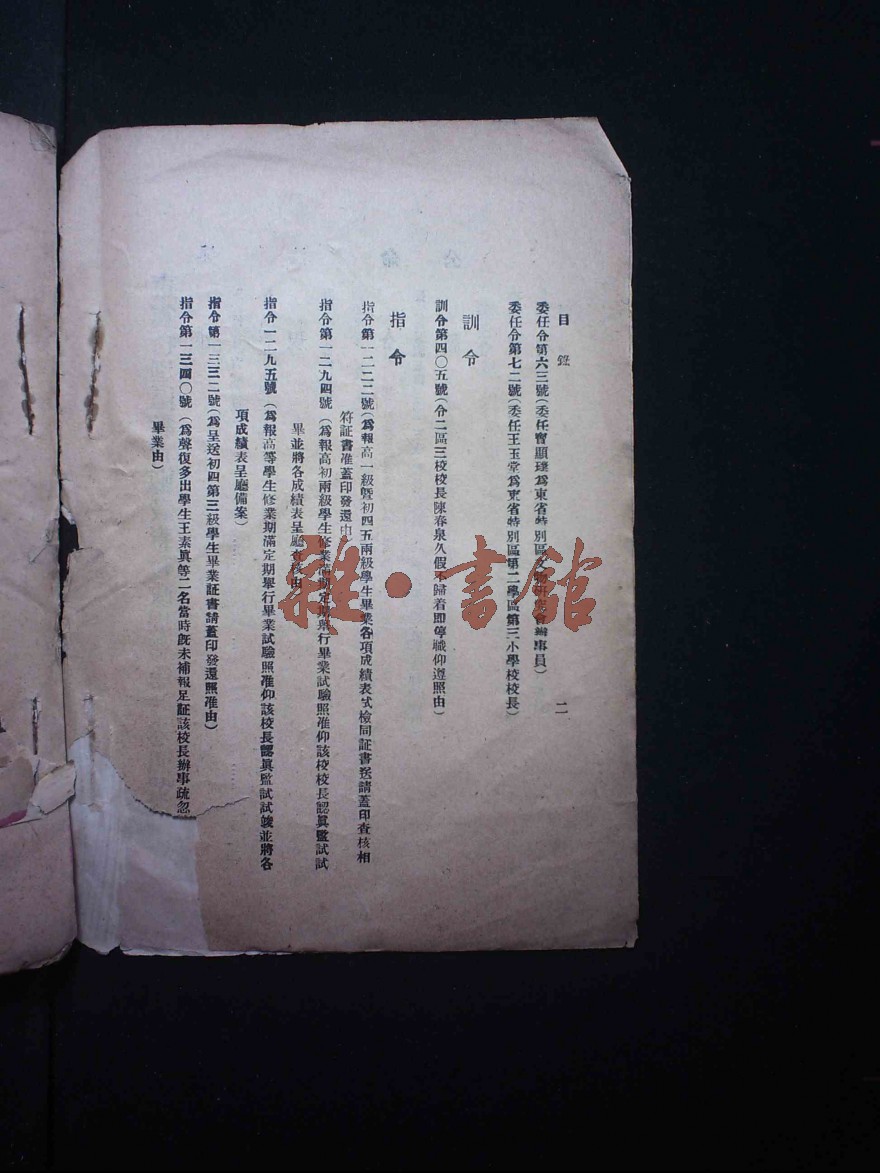 目錄
二
委任令第六三號(委任 顯璞爲東省特別區文物研究會辦事員)
委任令第七二號(委任王玉堂爲東省特別區第二學區第三小學校校長)
訓令
訓令第四〇五號(令二區三校校長陳春泉久假不歸着即停職仰遵照由)
指令
指令第一二二二號(爲報高一級曁初四五兩級學生畢業各項成績表式檢同証書送請蓋印查核相
符証書准蓋印發還由)
指令第一二九四號(爲報高初兩級學生修業滿期定期舉行畢業試驗照准仰該校校長認眞監試試
畢並將各成績表呈廳查核由)
指令一二九五號(爲報高等學生修業期滿定期舉行畢業試驗照准仰該校長認眞監試試竣並將各
項成績表呈廳備案)
指令第一三三二號(爲呈送初四第三級學生畢業証書請蓋印發還照准由)
指令第一三四〇號(爲聲復多出學生王素眞等二名當時旣未補報足証該校長辦事疏忽
畢業由)
雜·書館